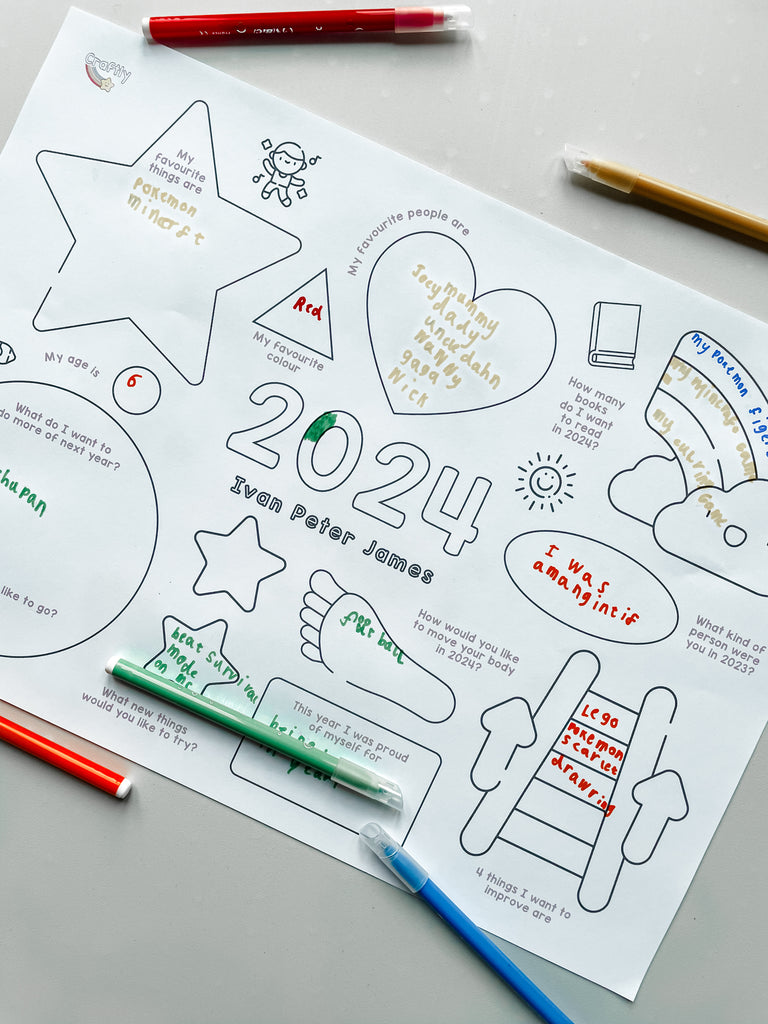 Craftly
My
favourite
things are
pokemon
mincrft
My favourite people are
mummy
Joey dady
unckdahn
NaNNy
gaga
Nick
Red
My favourite
colour
My age is
6
How many
books
do I want
to read
in 2024?
my Pokemon figers
my mincraft game
my
game
What do I want to
do more of next year?
like to go?
2024
Ivan Peter James
I was
amangintif
What kind of
person were
you in 2023?
How would you like
to move your body
in 2024?
beat survival
mode
on mc
What new things
would you like to try?
This year I was proud
of myself for
being
in year
Lego
pokemon
scarlet
drawring
4 things I want to
improve are